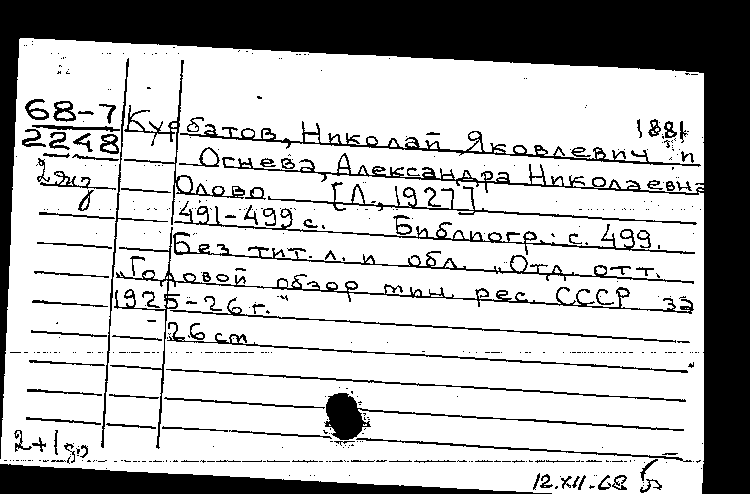 1881
68-7 Курбатов, Николай Яковлевич и
2248 Огнева, Александра Николаевна
2экз Олово. [Л., 1927].
491-499 с. Библиогр.: с. 499.
Без тит. л. и обл. „Отд. отт.
„Годовой обзор мин. рес. СССР за
1925-26 г.“
26 см.
12.XII-68